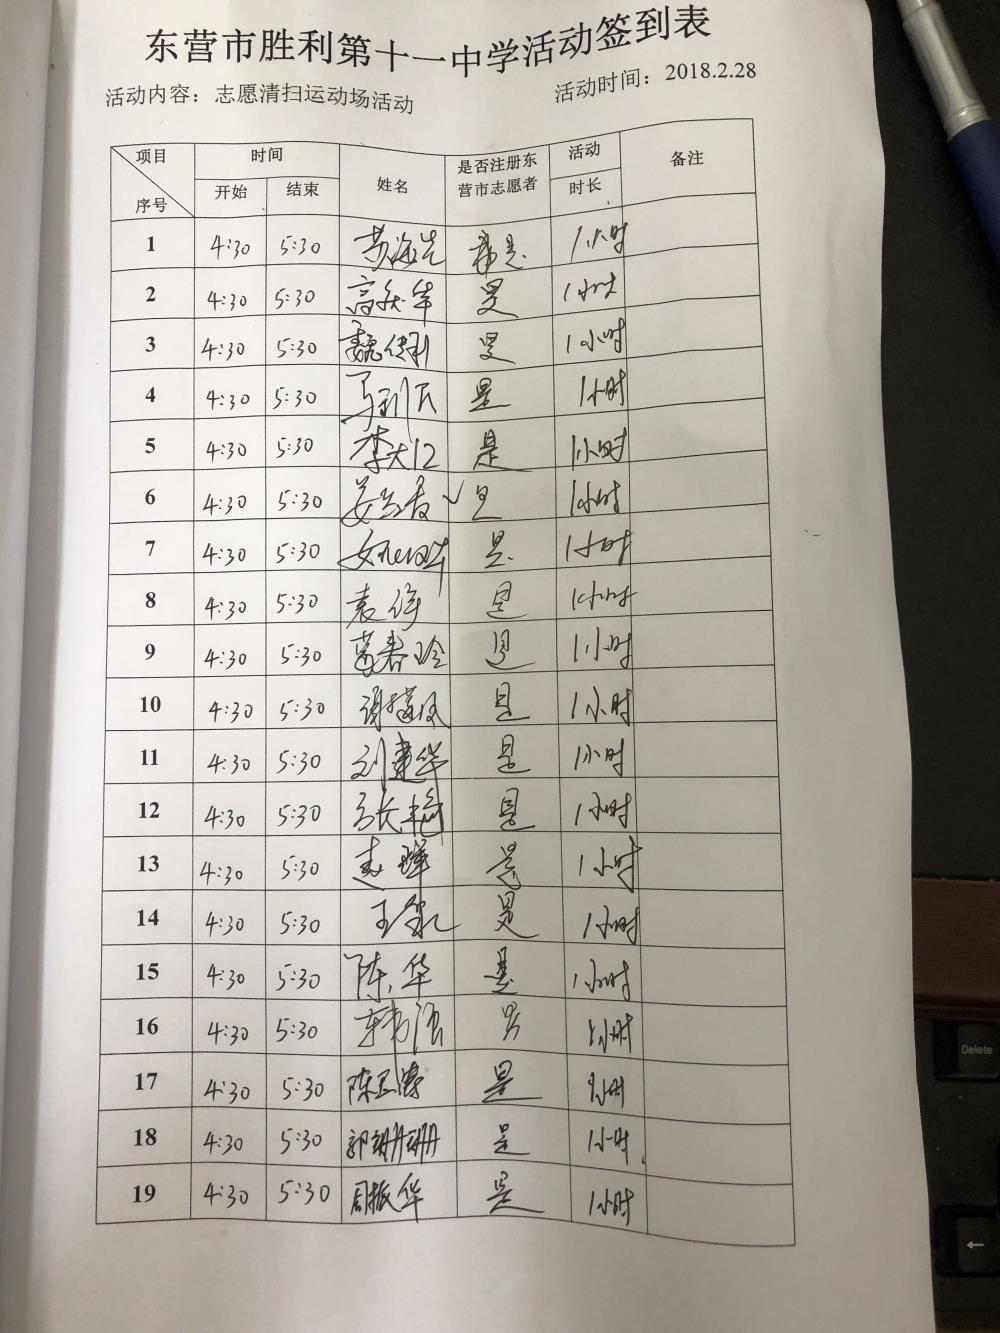 东营市胜利第十一中学活动签到表
活动内容：志愿清扫运动场活动
活动时间：2018.2.28
项目 序号 时间 开始 结束 姓名 是否注册东营市志愿者 活动时长 备注
1 4:30 5:30 苏海 是 1小时
2 4:30 5:30 高秋华 是 1小时
3 4:30 5:30 魏 是 1小时
4 4:30 5:30 马利 是 1小时
5 4:30 5:30 李大江 是 1小时
6 4:30 5:30 姜 是 1小时
7 4:30 5:30 是 1小时
8 4:30 5:30 袁 是 1小时
9 4:30 5:30 葛春玲 是 1小时
10 4:30 5:30 谢 是 1小时
11 4:30 5:30 刘建华 是 1小时
12 4:30 5:30 张艳 是 1小时
13 4:30 5:30 是 1小时
14 4:30 5:30 王 是 1小时
15 4:30 5:30 陈华 是 1小时
16 4:30 5:30 韩 是 1小时
17 4:30 5:30 陈玉涛 是 1小时
18 4:30 5:30 郭珊珊 是 1小时
19 4:30 5:30 周振华 是 1小时
Delete
←